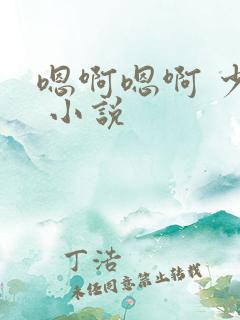 嗯啊嗯啊 少
小説
丁浩
未经同意禁止转载